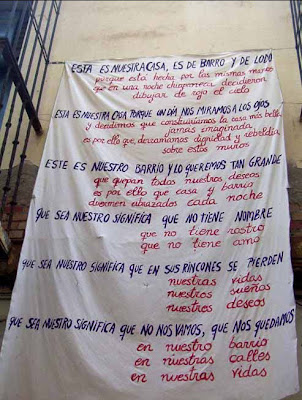 ESTA ES NUESTRA CASA, ES DE BARRO Y DE LODO
porque está hecha por las mismas manos
que en una noche chiapaneca decidieron
dibujar de rojo el cielo
ESTA ES NUESTRA CASA PORQUE UN DÍA NOS MIRAMOS A LOS OJOS
y decidimos que construiríamos la casa más bella
jamás imaginada
es por ello que, derramamos dignidad y rebeldía
sobre estos muros
ESTE ES NUESTRO BARRIO Y LO QUEREMOS TAN GRANDE
que quepan todos nuestros deseos
es por ello que casa y barrio
duermen abrazados cada noche
QUE SEA NUESTRO SIGNIFICA QUE NO TIENE NOMBRE
que no tiene rostro
que no tiene amo
QUE SEA NUESTRO SIGNIFICA QUE EN SUS RINCONES SE PIERDEN
nuestras vidas
nuestros sueños
nuestros deseos
QUE SEA NUESTRO SIGNIFICA QUE NO NOS VAMOS, QUE NOS QUEDAMOS
en nuestro barrio
en nuestras calles
en nuestras vidas